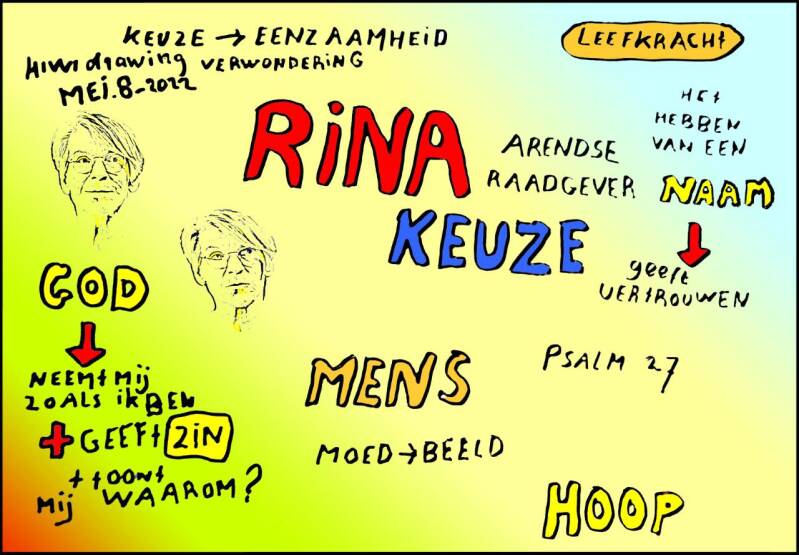 KEUZE → EENZAAMHEID
drawing VERWONDERING
MEi.8-2022
LEEFKRACHt
RiNA
ARENDSE
RAADGEVER
KEUZE
HEt
HEBBEN
VAN EEN
NAAM
geeft
VERtROUWEN
GOD
NEEMt Mij
ZOALS iK BEN
+ GEEFt ZiN
+ tOONt
Mij WAAROM?
MENS
MOED → BEELD
PSALM 27
HOOP